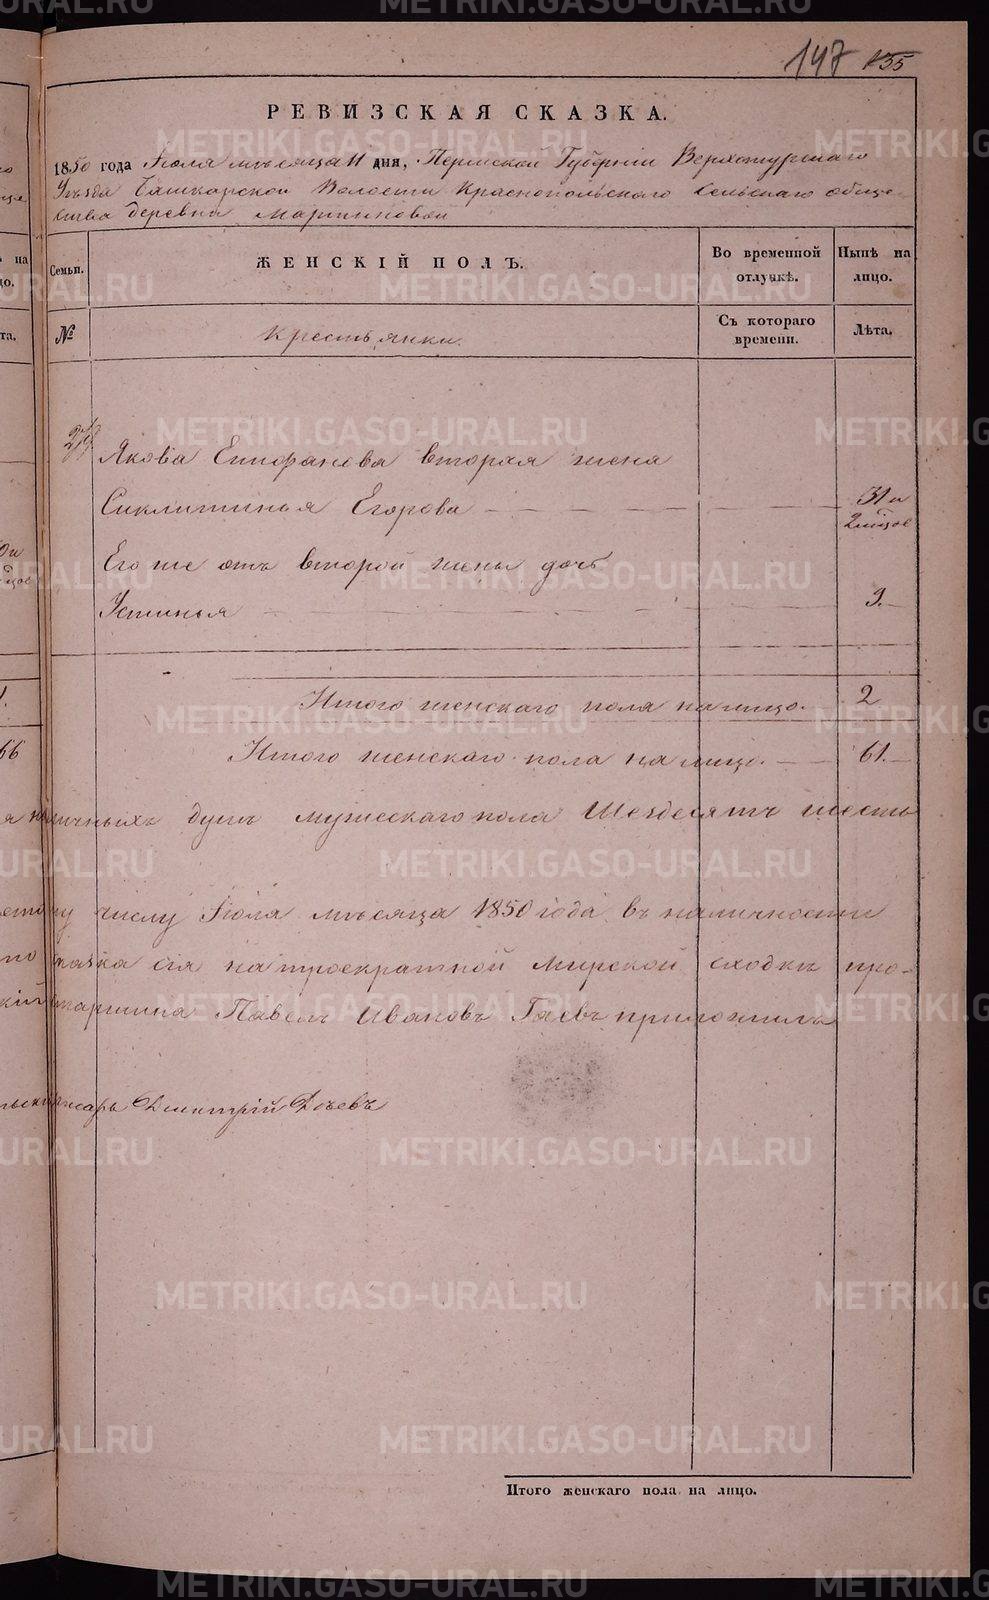 147 135
РЕВИЗСКАЯ СКАЗКА.
1850 года Іюля мѣсяца 11 дня, Пермской Губерніи Верхотурскаго
Уѣзда Башкарской Волости Краснопольскаго Сельскаго обще-
ства деревни Мартиновой
Семьи. ЖЕНСКІЙ ПОЛЪ. Во временной отлучкѣ. Нынѣ на лицо.
№ Крестьянки. Съ котораго времени. Лѣта.
Якова Епифанова вторая жена
Сиклитинья Егорова 31 и
2 мѣсцов
Его же отъ второй жены дочь
Устинья 9.
Итого женскаго пола налицо. 2
Итого женскаго пола на лицо. 61.
личныхъ душъ мужескаго пола Шездесятъ шесть
числу Іюля мѣсяца 1850 года въ наличности
сказка сія на троекратной мирской сходкѣ про-
старшина Павелъ Ивановъ Гаевъ приложилъ
писарь Дмитрій
Итого женскаго пола на лицо.
METRIKI.GASO-URAL.RU